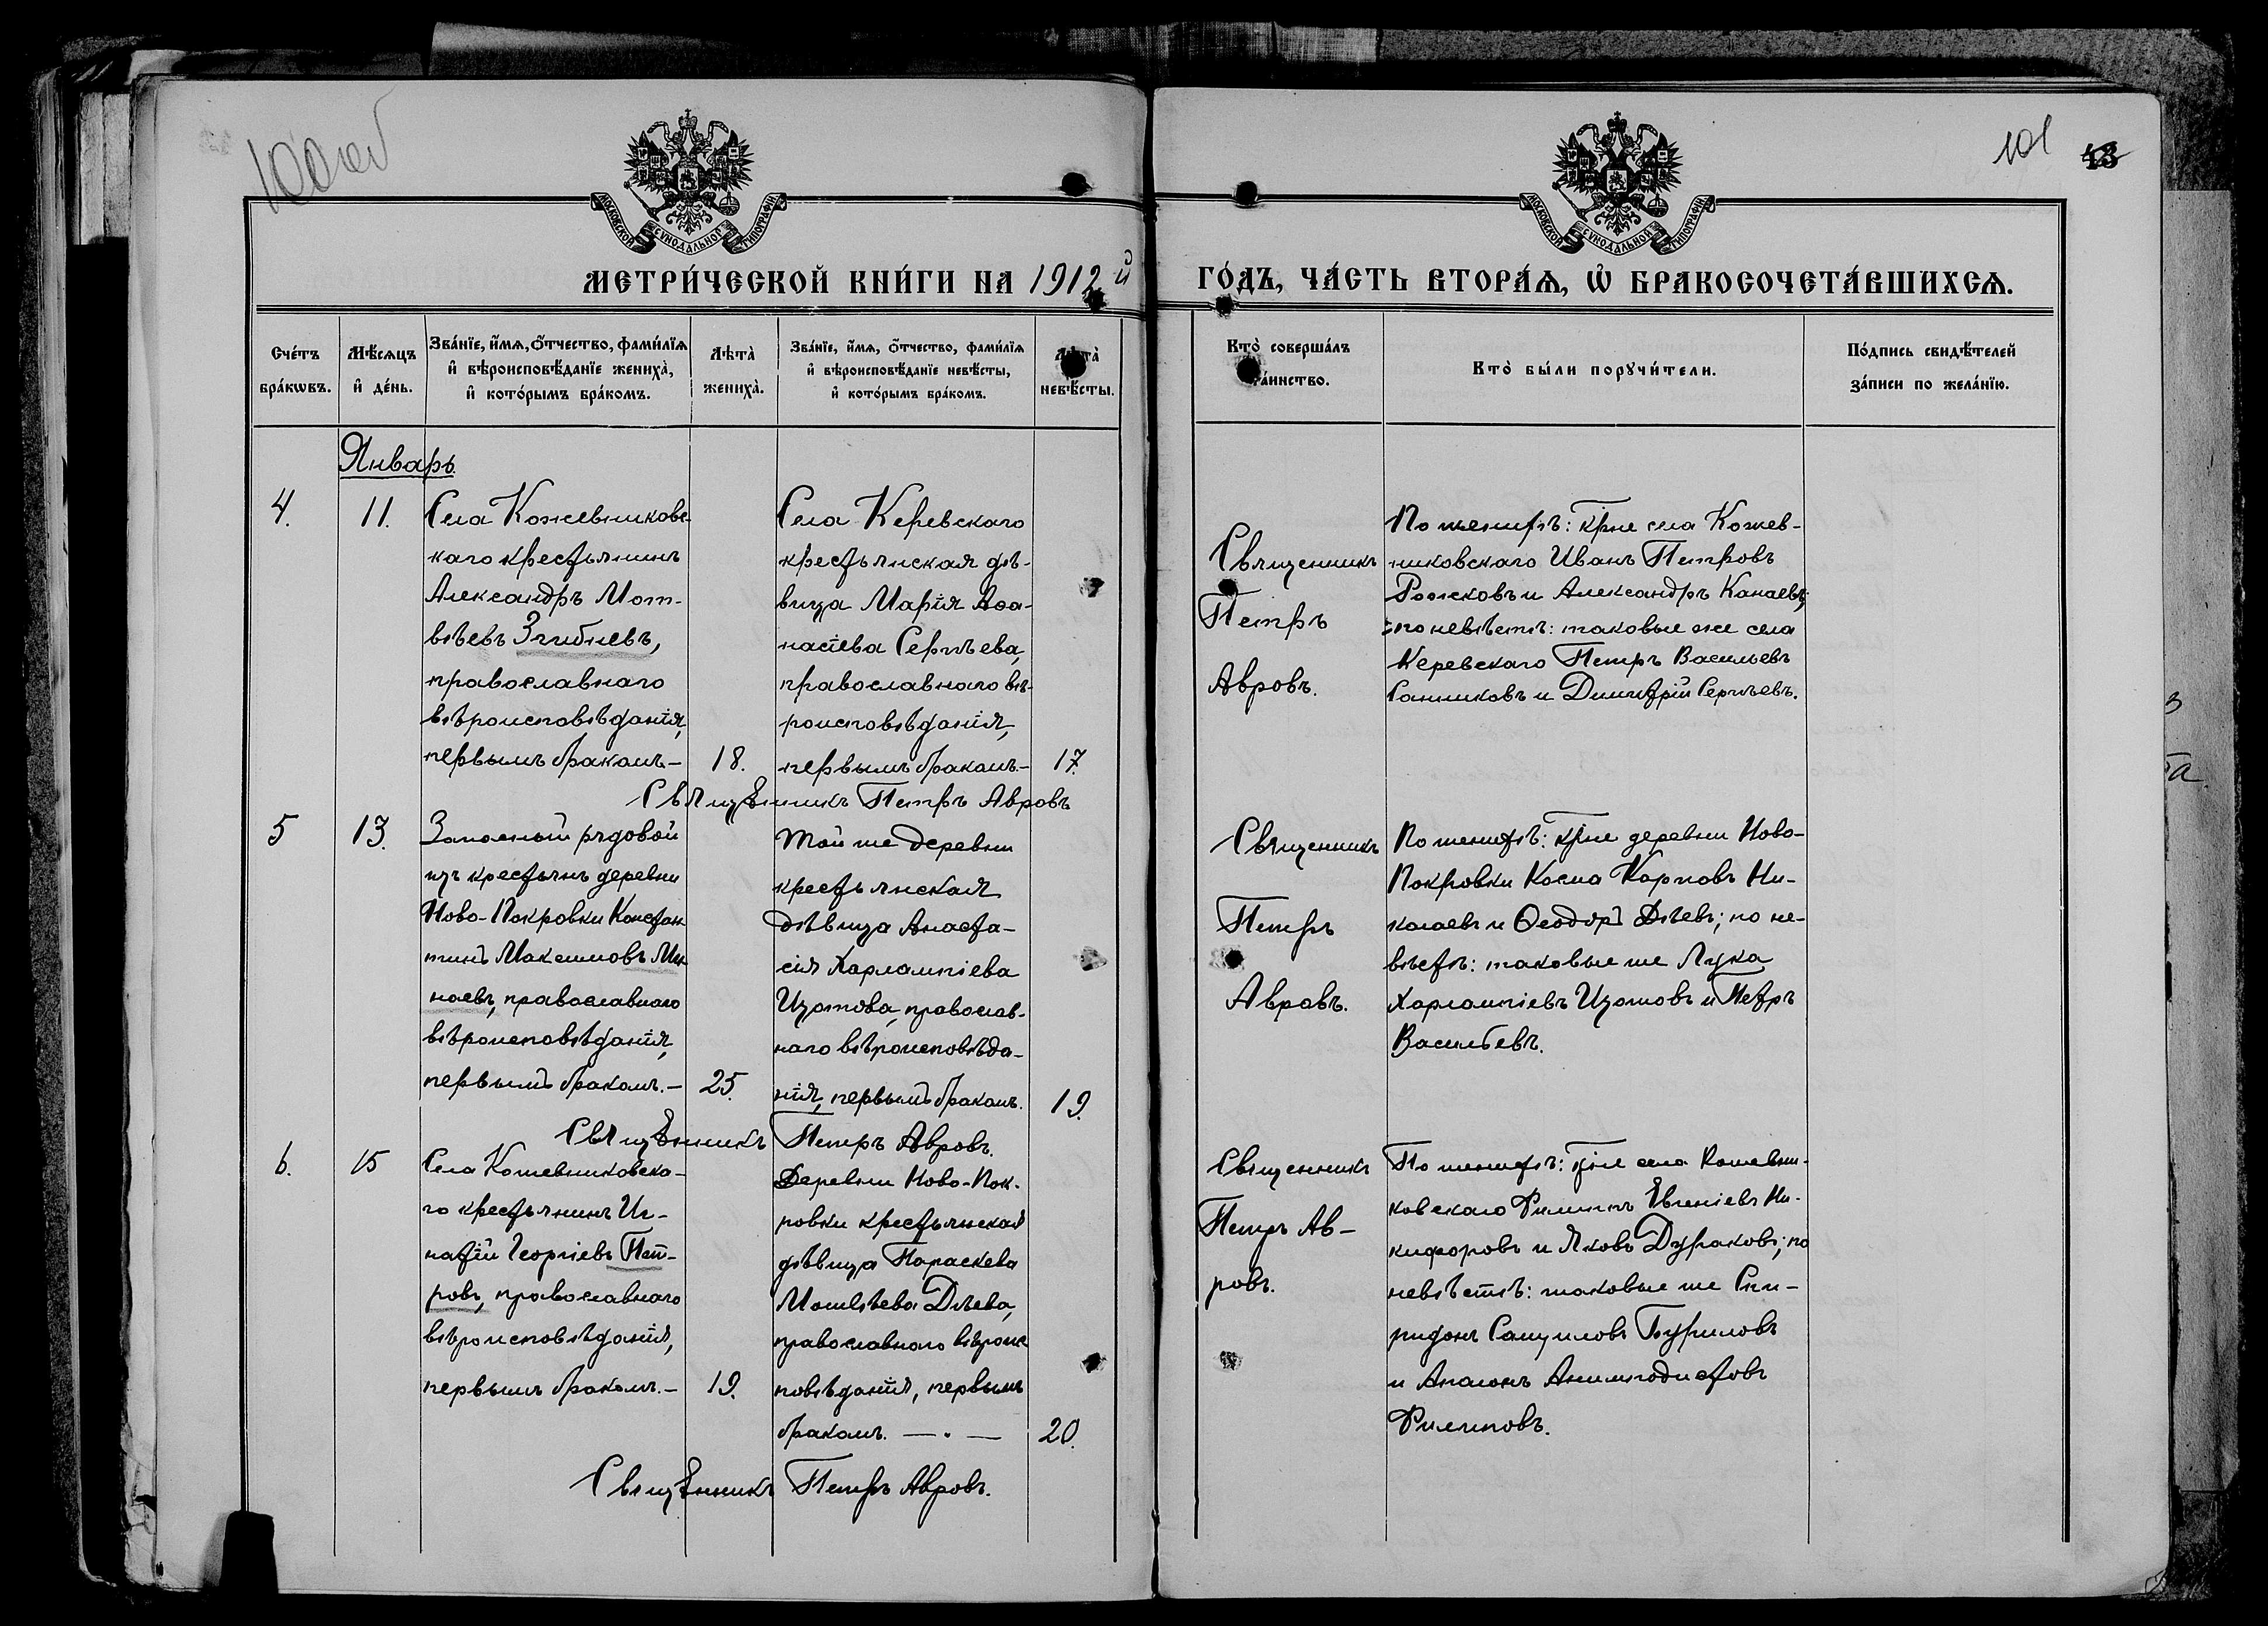 100 об
101
43
МОСКОВСКОЙ СѴНОДАЛЬНОЙ ТИПОГРАФІИ
МОСКОВСКОЙ СѴНОДАЛЬНОЙ ТИПОГРАФІИ
МЕТРИ́ЧЕСКОЙ КНИ́ГИ НА 1912й ГО́ДЪ, ЧА́СТЬ ВТОРА́Ѧ, Ѡ БРАКОСОЧЕТА́ВШИХСѦ.
Сче́тъ
бра́кѡвъ.
Мѣ́сѧцъ
и҆ де́нь.
Зва́нїе, и҆́мѧ, ѻ҆́тчество, фами́лїѧ
и҆ вѣроисповѣ́данїе жениха̀,
и҆ кото́рымъ бра́комъ.
Лѣта̀
жениха̀.
Зва́нїе, и҆́мѧ, ѻ҆́тчество, фами́лїѧ
и҆ вѣроисповѣ́данїе невѣ́сты,
и҆ кото́рымъ бра́комъ.
Лѣта̀
невѣ́сты.
Кто̀ соверша́лъ
та́инство.
Кто̀ бы́ли порꙋчи́тели.
По́дпись свидѣ́телей
за́писи по жела́нїю.
Январь.
4.
11.
Села Кожевниковс-
каго крестьянинъ
Александръ Мат-
вѣевъ Згибневъ,
православнаго
вѣроисповѣданія,
первымъ бракомъ.—
18.
Села Керевскаго
крестьянская дѣ-
вица Марія Аѳа-
насіева Сергѣева,
православнаго вѣ-
роисповѣданія,
первымъ бракомъ.—
17.
Священникъ
Петръ
Авровъ.
По женихѣ: кр̃не села Кожев-
никовскаго Иванъ Петровъ
Рожковъ и Александръ Канаевъ;
по невѣстѣ: таковые же села
Керевскаго Петръ Васильевъ
Санниковъ и Димитрій Сергѣевъ.
Священникъ Петръ Авровъ
5
13.
Запасный рядовой
изъ крестьянъ деревни
Ново-Покровки Констан
тинъ Максимовъ Ми
наевъ, православнаго
вѣроисповѣданія,
первымъ бракомъ.—
25.
Той же деревни
крестьянская
дѣвица Анаста-
сія Харлампіева
Изотова, православ-
наго вѣроисповѣда-
нія, первымъ бракомъ.
19.
Священникъ
Петръ
Авровъ.
По женихѣ: кр̃не деревни Ново-
Покровки Косма Карповъ Ни-
колаевъ и Ѳеодоръ Дѣевъ; по не-
вѣстѣ: таковые же Лука
Харлампіевъ Изотовъ и Петръ
Васильевъ.
Священникъ Петръ Авровъ.
6.
15
Села Кожевниковска-
го крестьянинъ Иг-
натій Георгіевъ Пет-
ровъ, православнаго
вѣроисповѣданія,
первымъ бракомъ.—
19.
Деревни Ново-Пок-
ровки крестьянская
дѣвица Параскева
Матвѣева Дѣева,
православнаго вѣроис
повѣданія, первымъ
бракомъ. — . —
20.
Священникъ
Петръ Ав-
ровъ.
По женихѣ: кр̃не села Кожевни-
ковскаго Филиппъ Евгеніевъ Ни-
кифоровъ и Яковъ Дураковъ; по
невѣстѣ: таковые же Спи-
ридонъ Самуиловъ Гуриловъ
и Апалонъ Анемподистовъ
Филиповъ.
Священникъ Петръ Авровъ.